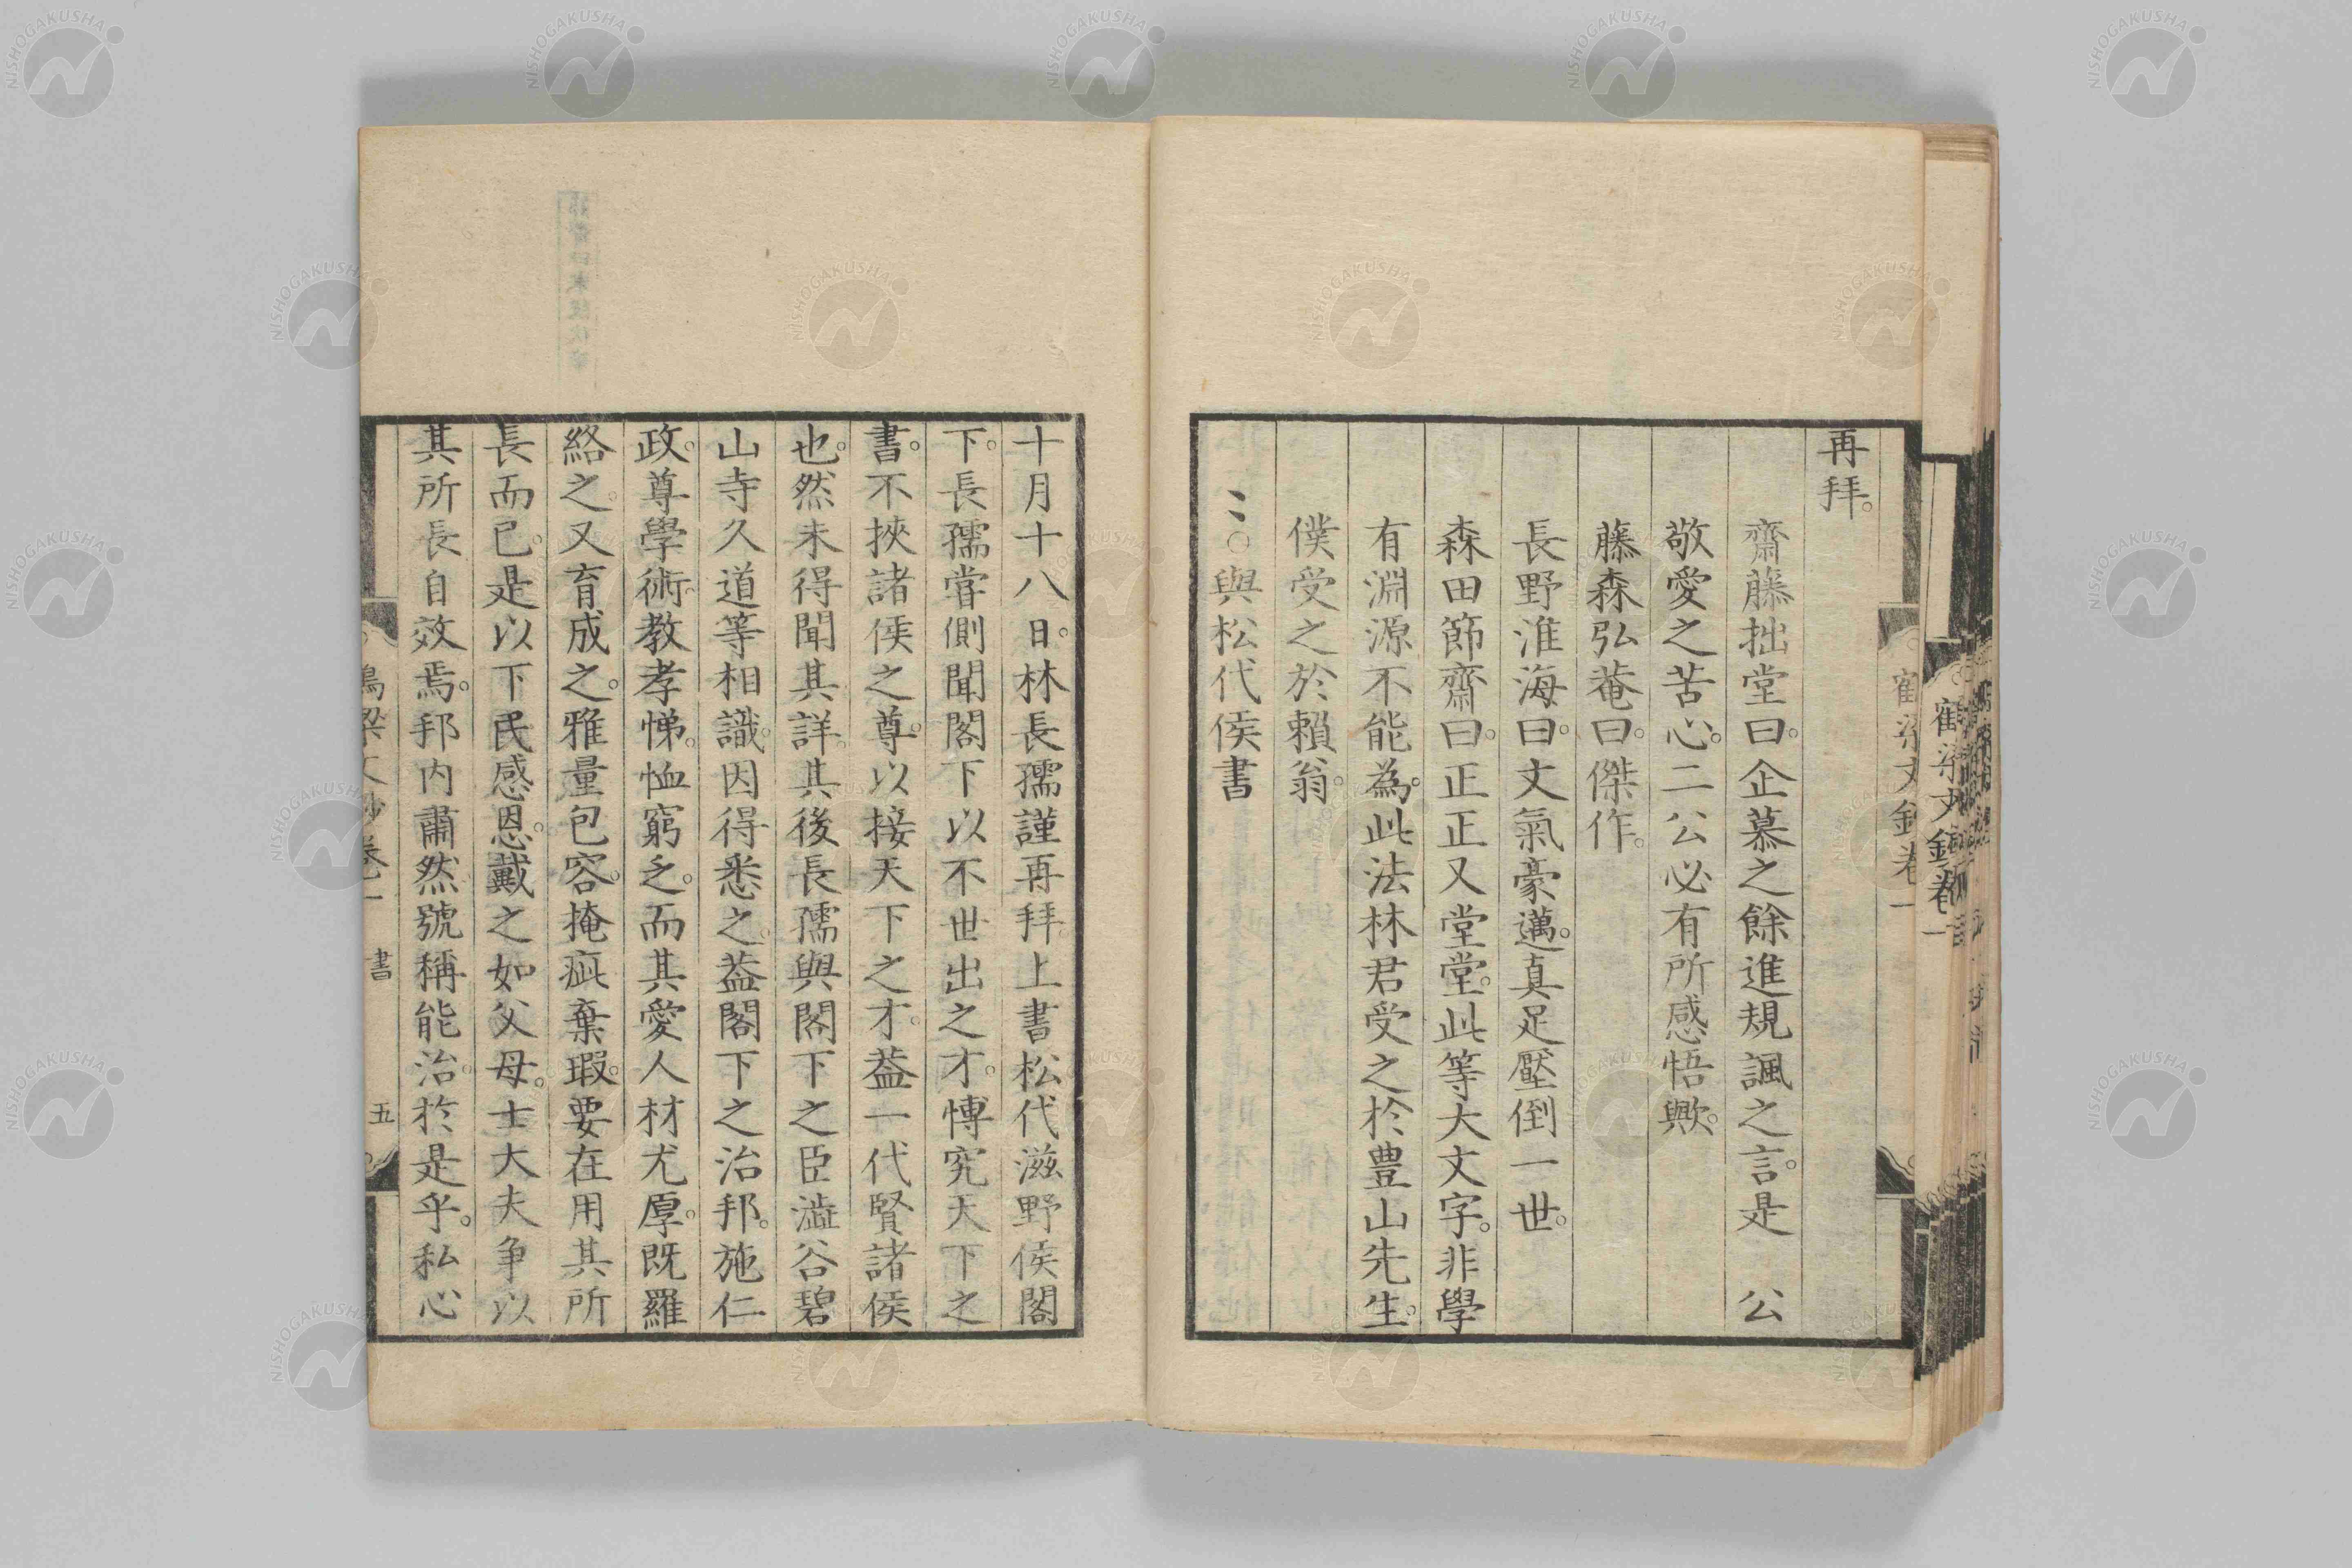 再拜。
齋藤拙堂曰。企慕之餘進規諷之言。是　公
敬愛之苦心。二公必有所感悟歟。
藤森弘菴曰。傑作。
長野淮海曰。文氣豪邁。真足壓倒一世。
森田節齋曰。正正又堂堂。此等大文字。非學
有淵源不能為。此法林君受之於豊山先生。
僕受之於賴翁。
〻○與松代侯書
十月十八日。林長孺謹再拜上書松代滋野侯閣
下。長孺嘗側聞閣下以不世出之才。慱究天下之
書。不挾諸侯之尊。以接天下之才。葢一代賢諸侯
也。然未得聞其詳。其後長孺與閣下之臣澁谷碧
山寺久道等相識。因得悉之。葢閣下之治邦。施仁
政。尊學術。教孝悌。恤窮乏。而其愛人材尤厚。既羅
絡之。又育成之。雅量包容。掩疵棄瑕。要在用其所
長而已。是以下民感恩。戴之如父母。士大夫争以
其所長自效焉。邦内肅然號稱能治。於是乎。私心
書
五
鶴梁文鈔卷一
NISHOGAKUSHA